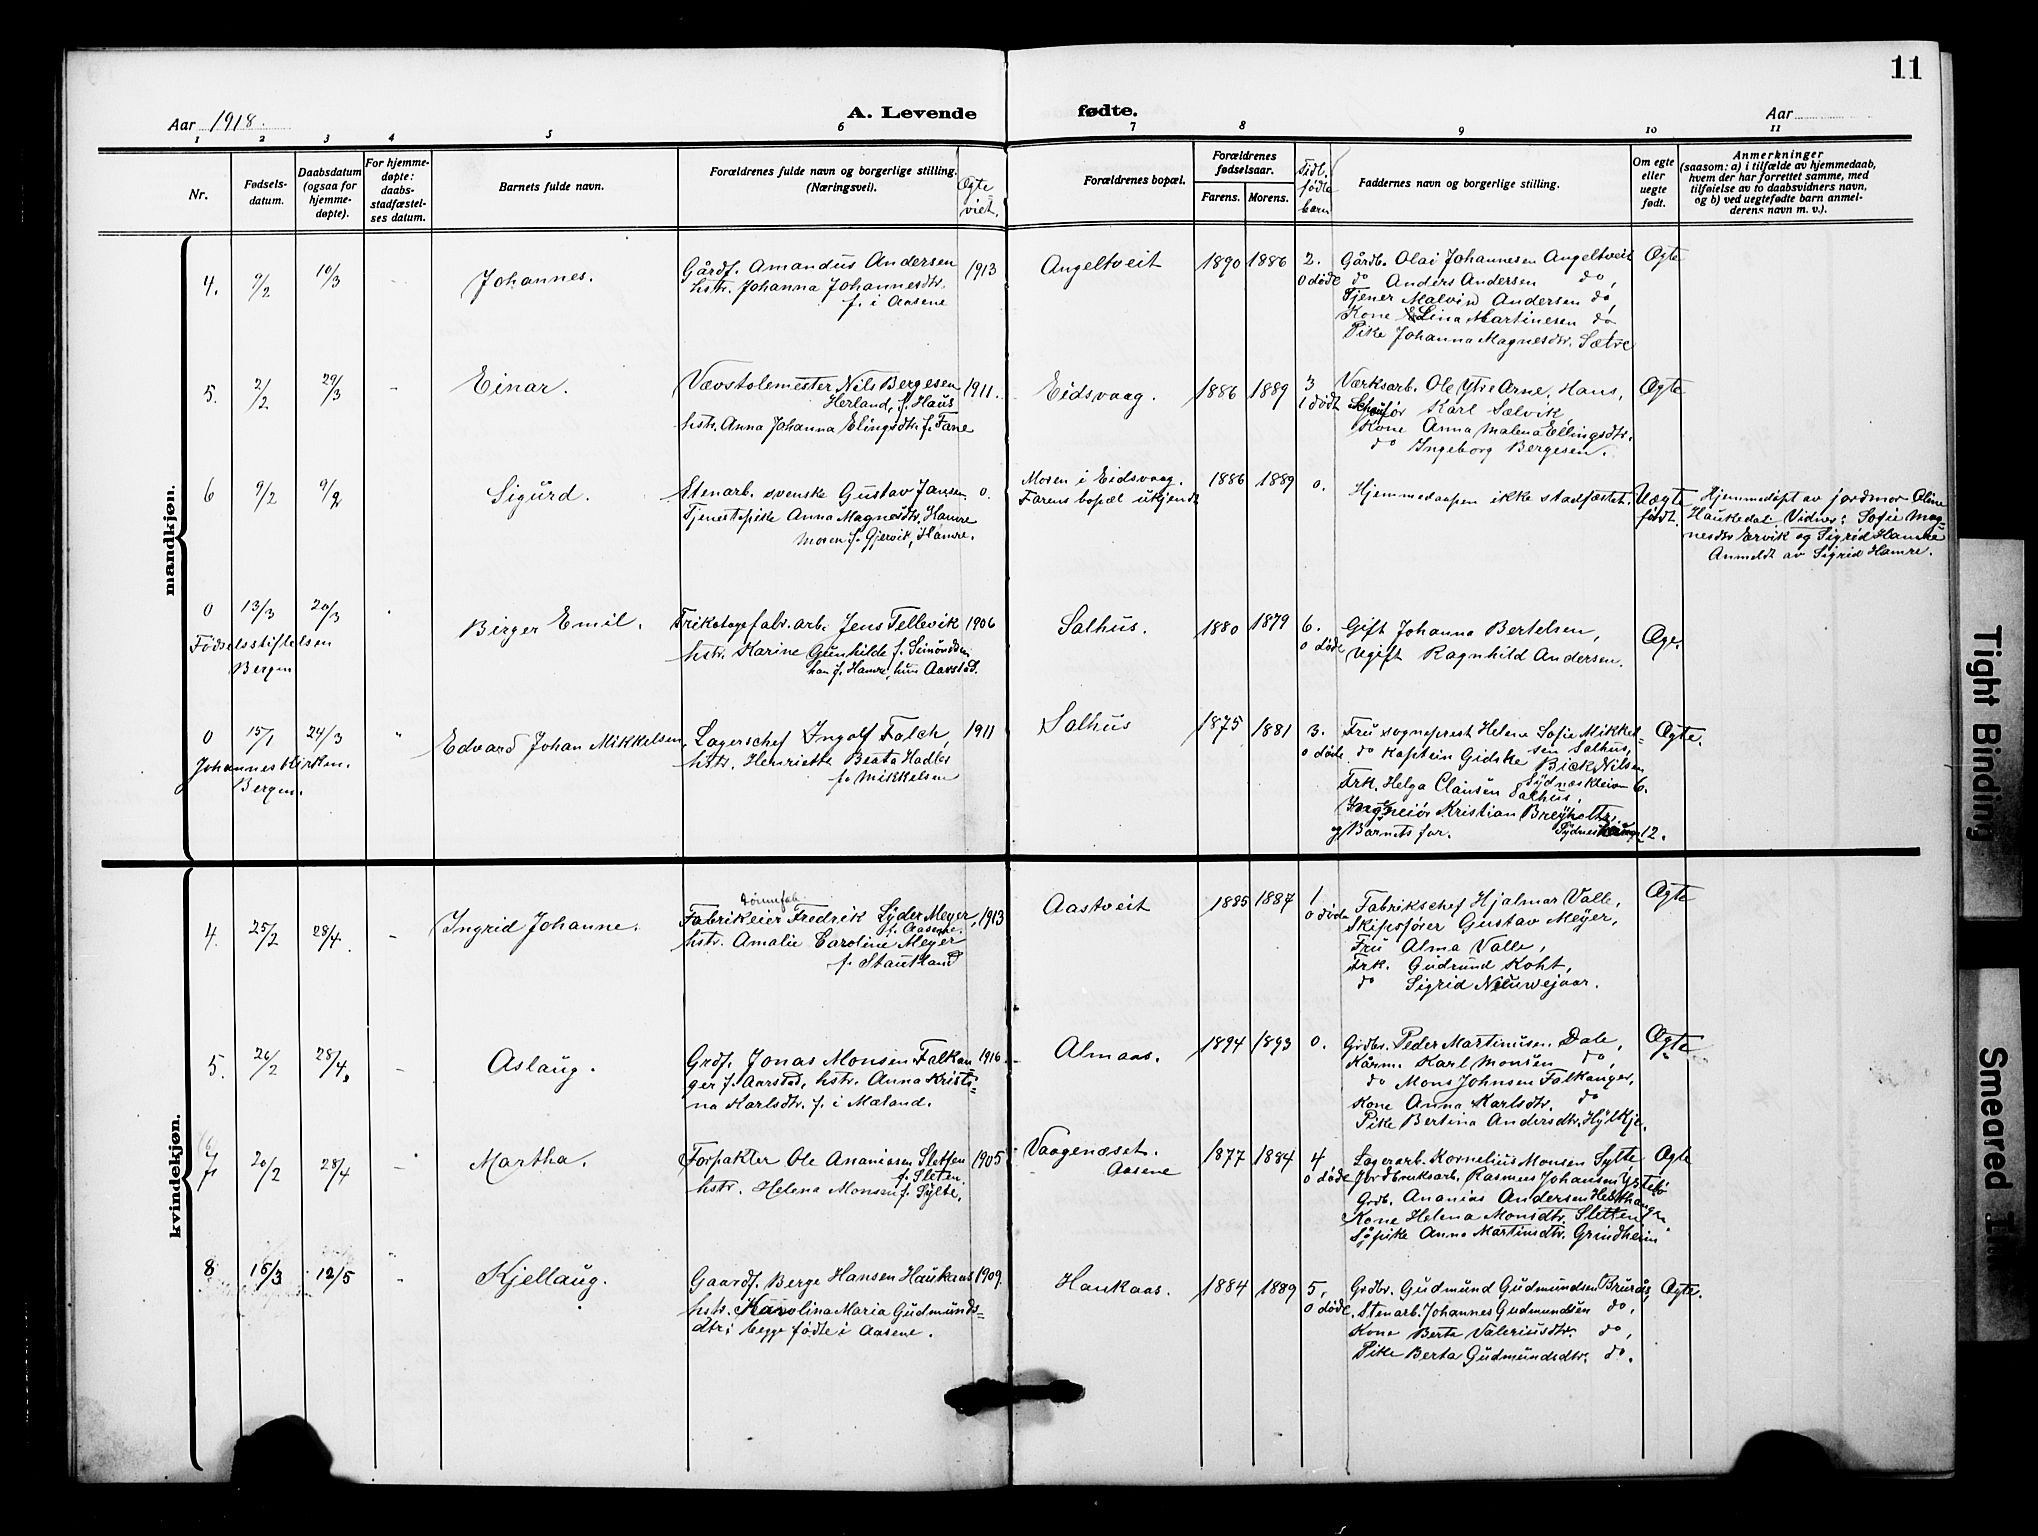 11
Aar 1918.
A. Levende fødte.
Aar
1 2 3 4 5 6 7 8 9 10 11
Nr.
Fødsels-
datum.
Daabsdatum
(ogsaa for
hjemme-
døpte).
For hjemme-
døpte:
daabs-
stadfæstel-
ses datum.
Barnets fulde navn.
Forældrenes fulde navn og borgerlige stilling.
(Næringsvei).
Ægte
viet.
Forældrenes bopæl.
Forældrenes
fødselsaar.
Farens. Morens.
Tidl.
fødte
barn
Faddernes navn og borgerlige stilling.
Om egte
eller
uegte
født.
Anmerkninger
(saasom: a) i tilfælde av hjemmedaab,
hvem der har forrettet samme, med
tilføielse av to daabsvidners navn,
og b) ved uegtefødte barn anmel-
derens navn m. v.).
mandkjøn.
4. 9/2 10/3 - Johannes.
Gårdf. Amandus Andersen
hstr. Johanna Johannesdtr.
f. i Aasene
1913
Angeltveit
1890 1886 2.
0 døde
Gårdb. Olai Johannesen Angeltveit
do Anders Andersen do,
Tjener Malvin Andersen do,
Kone Lina Martinesen do
Pike Johanna Magnesdtr. Sætre
Ægte
5. 2/2 29/3 - Einar.
Vævstolemester Nils Bergesen
Herland, f. Haus
hstr. Anna Johanna Elingsdtr f. Fane
1911.
Eidsvaag.
1886 1889 3
1 dødt
Værksarb. Ole Ytre Arne, Haus,
Schaufør Karl Sælvik,
Kone Anna Malena Ellingsdtr.
do Ingeborg Bergesen.
Ægte
6 9/2 9/2 Sigurd.
Stenarb. svenske Gustav Jansen
Tjenestepike Anna Magnesdtr. Hamre
Moren f. Gjervik, Hamre.
0.
Moren i Eidsvaag.
Farens bopæl ukjendt
1886 1889 0.
Hjemmedaapen ikke stadfæstet.
Uægte
født.
Hjemmedøpt av jordmor Oline
Haukedal Vidner: Sofie Mag-
nesdtr Ervik og Sigrid Hamre
Anmeldt av Sigrid Hamre.
0 13/3 20/3 Birger Emil.
Fødselsstiftelsen
Bergen
Trikotagefabr. arb. Jens Tellevik
hstr. Karine Gunhilde f. Simondsen
han f. Hamre, hun Aarstad.
1906
Salhus.
1880 1879 6.
0 døde
Gift Johanna Bertelsen,
Ugift Ragnhild Andersen.
Ægte
0 15/1 24/3 " Edvard Johan Mikkelsen,
Johanneskirken.
Bergen.
Lagerschef Ingolf Falch,
hstr. Henriette Beata Hadler
f. Mikkelsen
1911
Salhus
1875 1881 3.
0 døde
Fru sogneprest Helene Sofie Mikkel-
sen Salhus,
do Kaptein Gidske Bick Nilsen
Sydneskleiven 6.
Frk. Helga Clausen Salhus,
Ingeniør Kristian Breyholtz,
og Barnets far.
12.
Ægte.
kvindekjøn.
4. 25/2 28/4 - Ingrid Johanne.
Tøndefab.
Fabrikeier Fredrik Lyder Meyer,
f. Aasene.
hstr. Amalie Caroline Meyer
1913
Aastveit
1885 1887 1
0 døde
Fabrikschef Hjalmar Valle,
Skipsfører Gustav Meyer,
Fru Alma Valle,
Frk. Gudrund Koht,
do Sigrid Nieuwejaar.
Ægte
5. 26/2 28/4. - Aslaug.
Grdf. Jonas Monsen Falkan
ger f. Aarstad, hstr. Anna Kristi-
na Karlsdtr. f. i Mæland.
1916
Almaas.
1894 1893 0.
Grdbr. Peder Martinusen Dale,
Kårm. Karl Monsen do,
do Mons Johnsen Falkanger,
Kone Anna Karlsdtr. do
Pike Bertina Andersdtr. Hylkje.
Ægte
7 20/2 28/4 - Martha.
Forpakter Ole Ananiasen Sletten
f. Sleten.
hstr. Helena Monsen f. Sylte,
1905
Vaagenæset.
Aasene
1877 1884 4
0 døde
Lagerarb. Kornelius Monsen Sylte
Jordbruksarb. Rasmus Johansen
Grdb. Ananias Andersen
Kone Helena Monsdtr. Sletten
Søpike Anna Martinsdtr. Grindheim
Ægte
8 16/3 12/5 - Kjellaug.
Gaardf. Berge Hansen Haukaas
hstr. Karolina Maria Gudmunds-
dtr; begge fødte i Aasene.
1909.
Haukaas.
1884 1889 5,
0 døde
Grdbr. Gudmund Gudmundsen Brurås,
Stenarb. Johannes Gudmundsen do,
Kone Berta Valeriusdtr. do,
Pike Berta Gudmundsdtr. do.
Ægte.
Tight Binding
Smeared